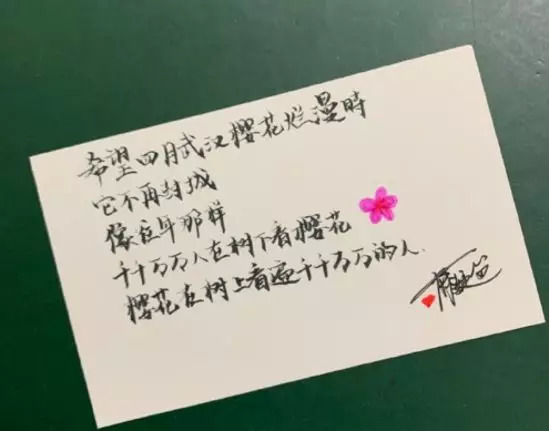 希望四月武汉樱花烂漫時
它不再封城
像往年那样
千千万万人在树下看樱花
樱花在树上看遍千千万万的人.